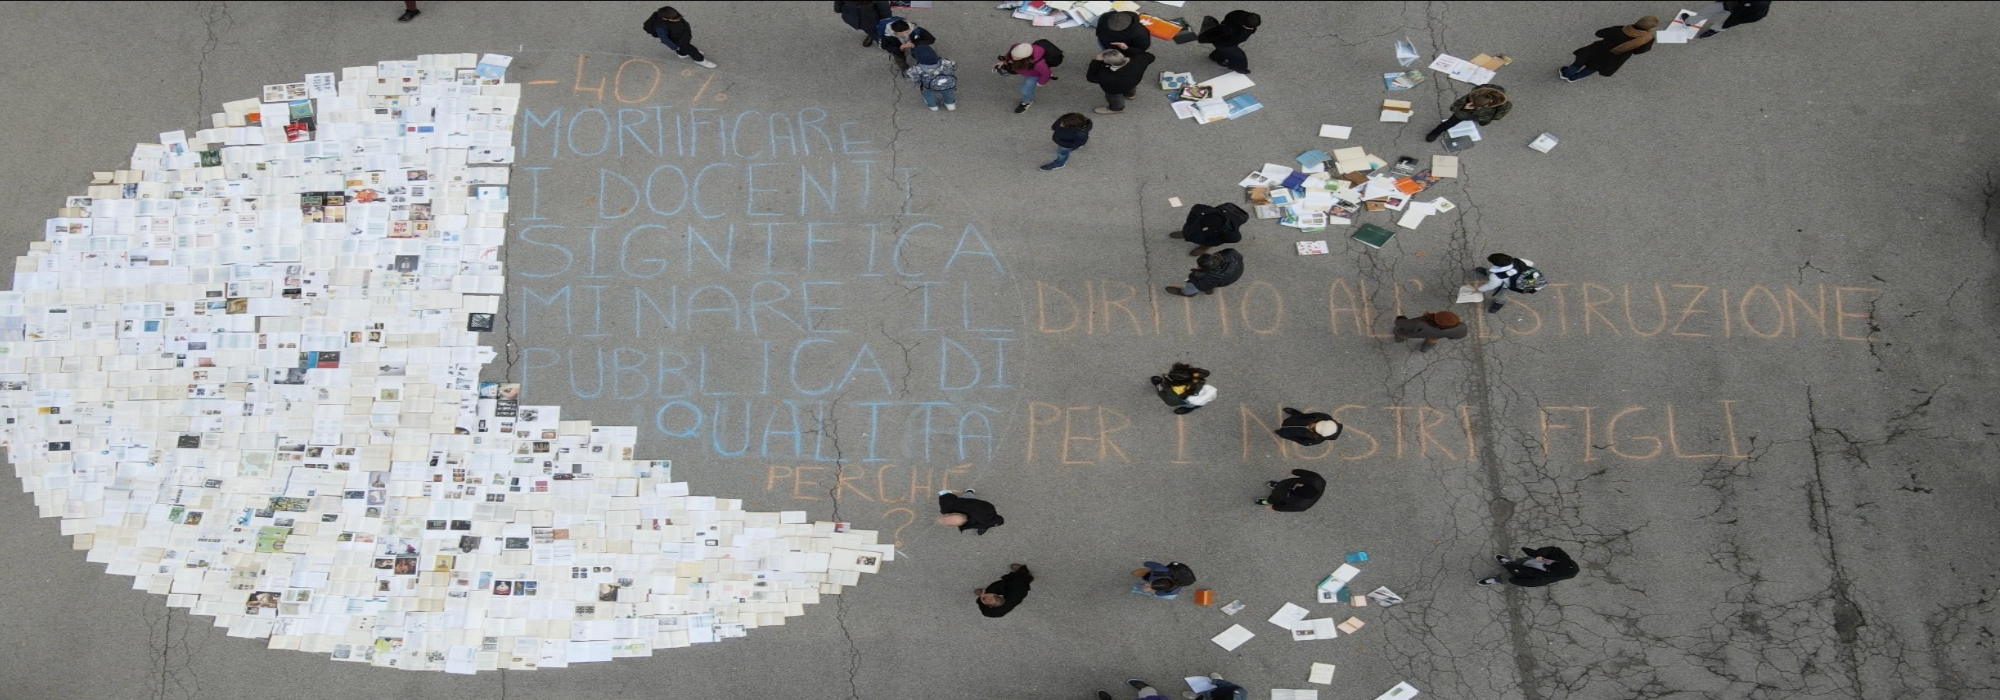 -40%
MORTIFICARE
I DOCENTI
SIGNIFICA
MINARE IL DIRITTO ALL'ISTRUZIONE
PUBBLICA DI
QUALITÀ PER I NOSTRI FIGLI
PERCHÉ
?